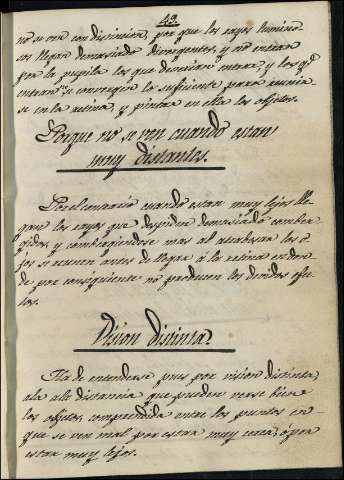 43.
no se ven con distincion, por que los rayos lumino-
sos llegan demasiado divergentes, y no entran
por la pupila los que devieran entrar, y los q.e
entran no se convergen lo suficiente para reunir-
se en la retina, y pintar en ella los objetos.
Porque no se ven cuando estan
muy distantes.
Por el contrario cuando estan muy lejos lle-
gan los rayos que despiden demasiado conber-
gidos, y combirgiendose mas al atrabesar los o-
jos se reunen antes de llegar á la retina en don-
de por consiguiente no producen los devidos efec-
tos.
Vision distinta.
Ha de entenderse pues por vision distinta,
ala ala distancia que pueden verse bien
los objetos, comprendida entre los puntos en
que se ven mal por estar muy cerca, ó por
estar muy lejos.